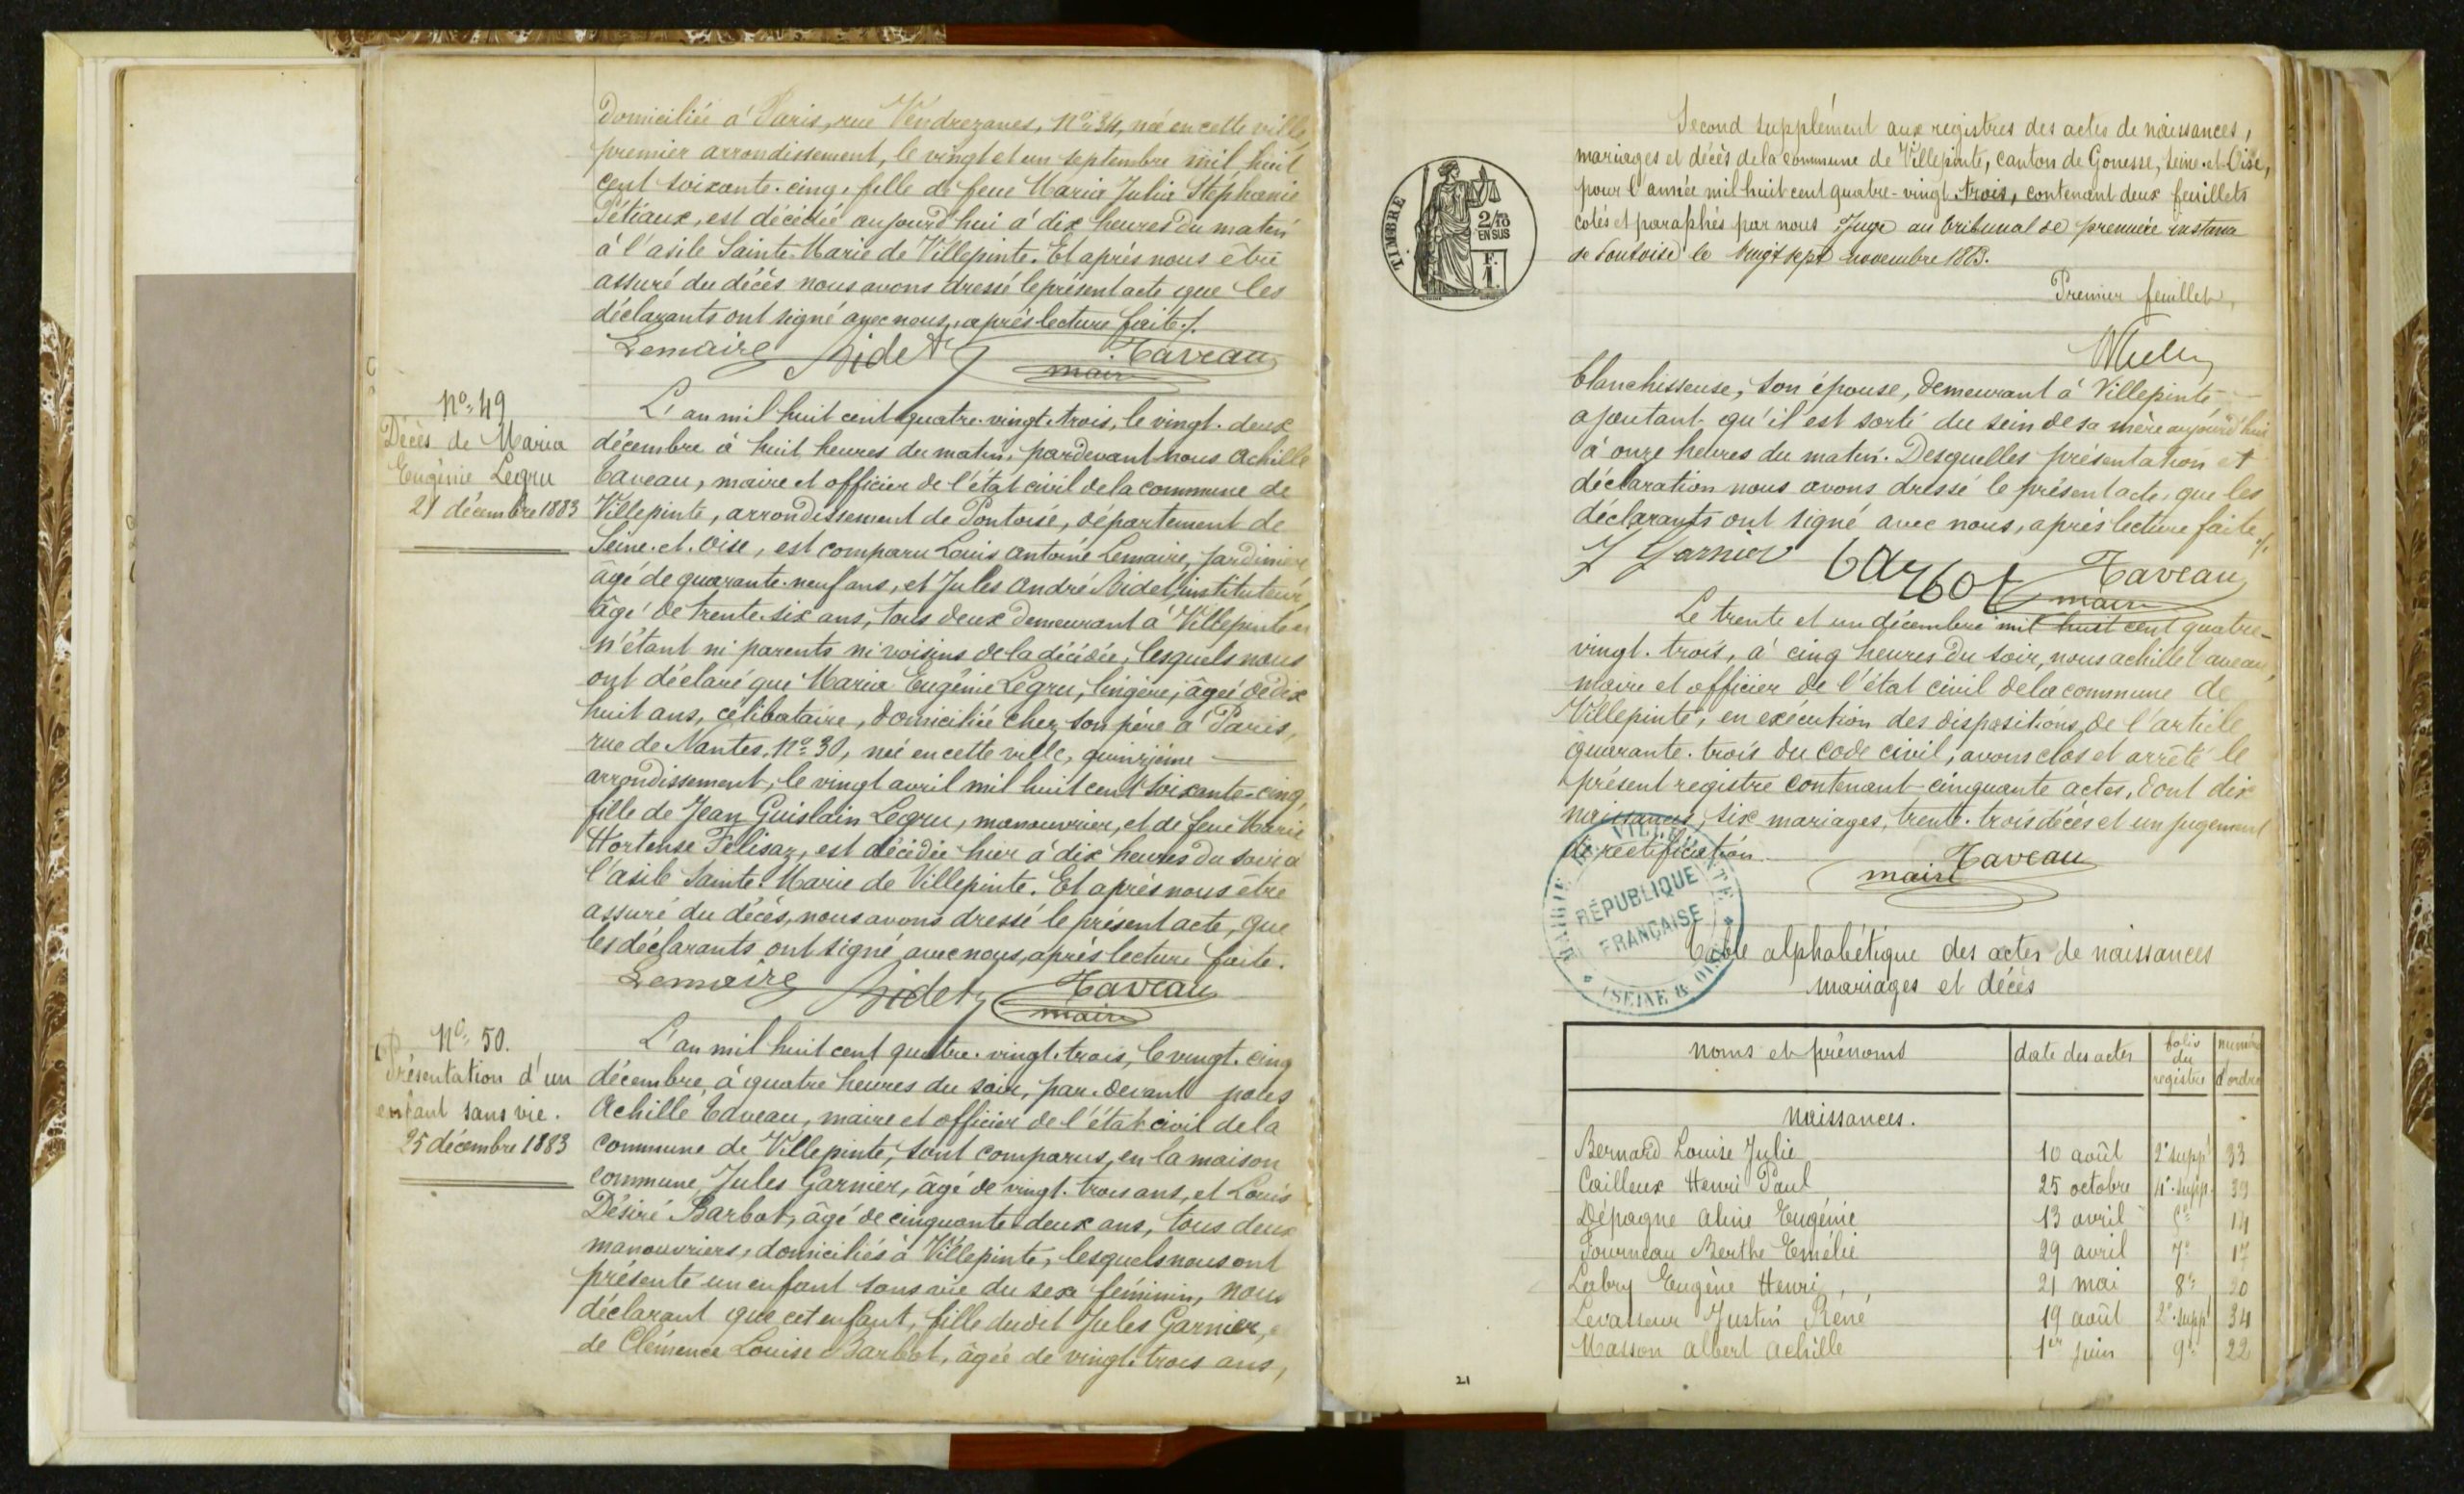 Domiciliée à Paris, rue Vendrezanes, N° 34, née en cette ville,
premier arrondissement, le vingt et un septembre mil huit
cent soixante-cinq, fille de feue Maria Julia Stéphanie
Pétiaux, est décédée aujourd'hui à dix heures du matin
à l'asile Sainte-Marie de Villepinte. Et après nous être
assuré du décès nous avons dressé le présent acte que les
déclarants ont signé avec nous, après lecture faite./.
Lemaire Bidet Taveau
maire
N° 49
Décès de Maria
Eugénie Legru
21 décembre 1883
L'an mil huit cent quatre-vingt-trois, le vingt-deux
décembre à huit heures du matin, pardevant nous Achille
Taveau, maire et officier de l'état civil de la commune de
Villepinte, arrondissement de Pontoise, département de
Seine-et-Oise, est comparu Louis Antoine Lemaire, jardinier
âgé de quarante-neuf ans, et Jules André Bidet, instituteur,
âgé de trente-six ans, tous deux demeurant à Villepinte
n'étant ni parents ni voisins de la décédée, lesquels nous
ont déclaré que Maria Eugénie Legru, lingère, âgée de dix
huit ans, célibataire, domiciliée chez son père à Paris,
rue de Nantes, N° 30, née en cette ville, quinzième
arrondissement, le vingt avril mil huit cent soixante-cinq,
fille de Jean Guislain Legru, manouvrier, et de feue Marie
Hortense Felisaz, est décédée hier à dix heures du soir à
l'asile Sainte-Marie de Villepinte. Et après nous être
assuré du décès, nous avons dressé le présent acte, que
les déclarants ont signé avec nous, après lecture faite.
Lemaire Bidet Taveau
maire
N° 50.
Présentation d'un
enfant sans vie.
25 décembre 1883
L'an mil huit cent quatre-vingt-trois, le vingt-cinq
décembre, à quatre heures du soir, par-devant nous
Achille Taveau, maire et officier de l'état civil de la
commune de Villepinte, sont comparus, en la maison
commune, Jules Garnier, âgé de vingt-trois ans, et Louis
Désiré Barbot, âgé de cinquante-deux ans, tous deux
manouvriers, domiciliés à Villepinte, lesquels nous ont
présenté un enfant sans vie du sexe féminin, nous
déclarant que cet enfant, fille dudit Jules Garnier,
de Clémence Louise Barbot, âgée de vingt-trois ans,
TIMBRE
2/10
EN SUS
F.
1.
Second supplément aux registres des actes de naissances,
mariages et décès de la commune de Villepinte, canton de Gonesse, Seine-et-Oise,
pour l'année mil huit cent quatre-vingt-trois, contenant deux feuillets
cotés et paraphés par nous Juge au tribunal de première instance
de Pontoise le vingt sept novembre 1883.
Premier feuillet,
blanchisseuse, son épouse, demeurant à Villepinte
ajoutant qu'il est sorti du sein de sa mère aujourd'hui
à onze heures du matin. Desquelles présentation et
déclaration nous avons dressé le présent acte, que les
déclarants ont signé avec nous, après lecture faite./.
J Garnier barbot Taveau
maire
Le trente et un décembre mil huit cent quatre-
vingt-trois, à cinq heures du soir, nous achille Taveau,
maire et officier de l'état civil de la commune de
Villepinte, en exécution des dispositions de l'article
quarante-trois du code civil, avons clos et arrêté le
présent registre contenant cinquante actes, dont dix
naissances, six mariages, trente-trois décès et un jugement
de rectification.
Taveau
maire
RÉPUBLIQUE
FRANÇAISE
(SEINE & OISE)
Table alphabétique des actes de naissances
mariages et décès
noms et prénoms date des actes folio du registre numéro d'ordre
Naissances.
Bernard Louise Julie 10 août 2e suppt 33
Cailleux Henri Paul 25 octobre 4e supp. 39
Dépagne Aline Eugénie 13 avril 14
Fourneau Berthe Emélie 29 avril 7e 17
Labry Eugène Henri 21 mai 8e 20
Levasseur Justin René 19 août 2e suppt 34
Masson albert achille 1er juin 9e 22
21